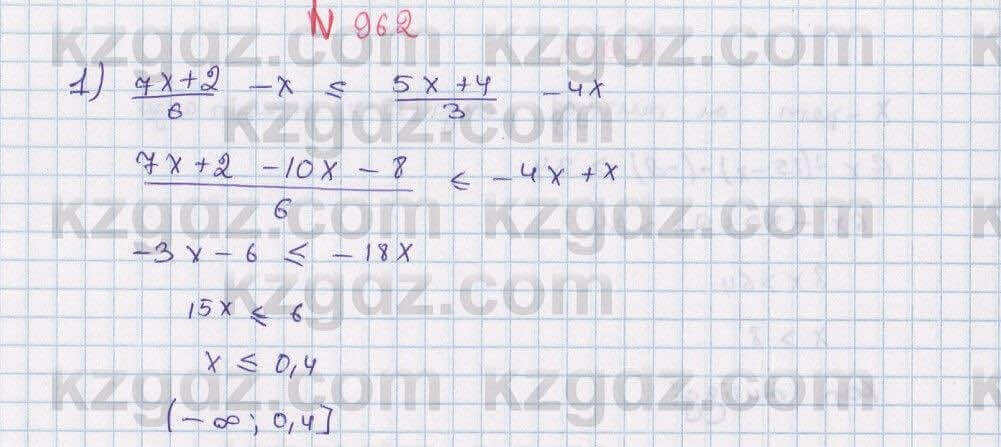 N 962
kzgdz.com kzgdz.com
1) (7x+2)/6 - x ≤ (5x+4)/3 - 4x
kzgdz.com
(7x+2 - 10x - 8)/6 ≤ -4x + x
kzgdz.com kzgdz.com
-3x - 6 ≤ -18x
kzgdz.com
15x ≤ 6
x ≤ 0,4
kzgdz.com kzgdz.com
(-∞; 0,4]